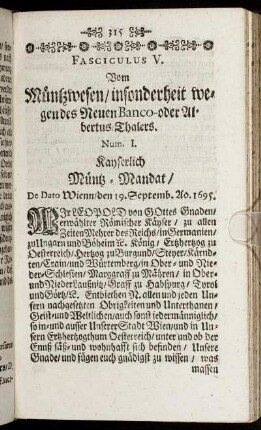 315
FASCICULUS V.
Vom
Müntzwesen/insonderheit we-
gen des Neuen Banco-oder Al-
bertus Thalers.
Num. I.
Kayserlich
Müntz-Mandat/
De Dato Wienn/den 19. Septemb. Ao. 1695.
WIr LEOPOLD von GOttes Gnaden/
erwählter Römischer Käyser/ zu allen
Zeiten Mehrer des Reichs/in Germanien/
zu Ungarn und Böheim/ꝛc. König/ Ertzhertzog zu
Oesterreich/Hertzog zu Burgund/Steyer/Kärnd-
ten/Crain/und Würtemberg/in Ober- und Nie-
der-Schlesien/ Marggraff zu Mähren/ in Ober-
und NiederLaußnitz/Graf zu Habspurg/ Tyrol
und Görtz/ꝛc. Entbiethen N. allen und jeden Un-
sern nachgesetzten Obrigkeiten und Unterthanen/
Geist-und Weltlichen/auch sonst jedermänniglich/
so in-und ausser Unserer Stadt Wien/und in Un-
sern Ertzhertzogthum Oesterreich/unter und ob der
Ennß säß- und wohnhafft sich befinden/ Unsere
Gnade/und fügen euch gnädigst zu wissen/ was
massen